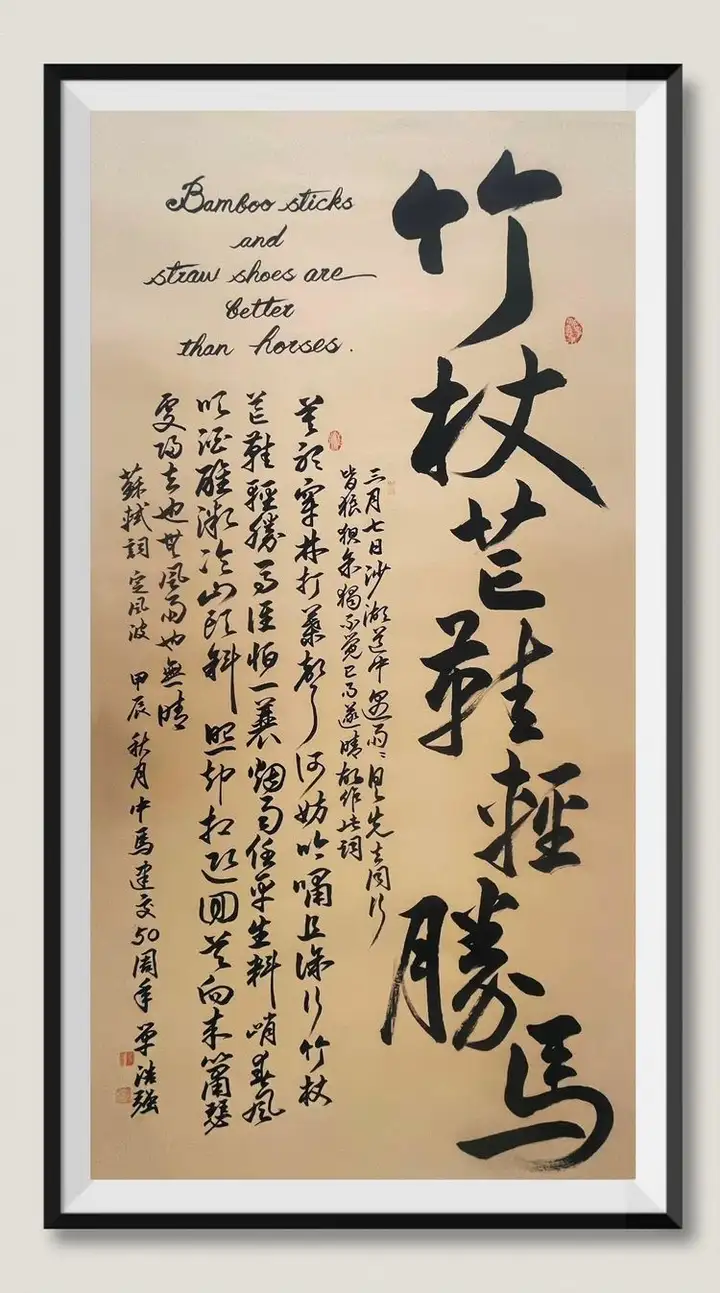 竹杖芒鞋輕勝馬
Bamboo sticks
and
straw shoes are
better
than horses.
三月七日沙湖道中遇雨〻具先去同行
皆狼狽余獨不覺已而遂晴故作此詞
莫聽穿林打葉聲何妨吟嘯且徐行竹杖
芒鞋輕勝馬誰怕一蓑烟雨任平生料峭春風
吹酒醒微冷山頭斜照却相迎回首向來蕭瑟
處歸去也無風雨也無晴
蘇軾詞 定風波 甲辰秋月中馬建交50周年 浩强